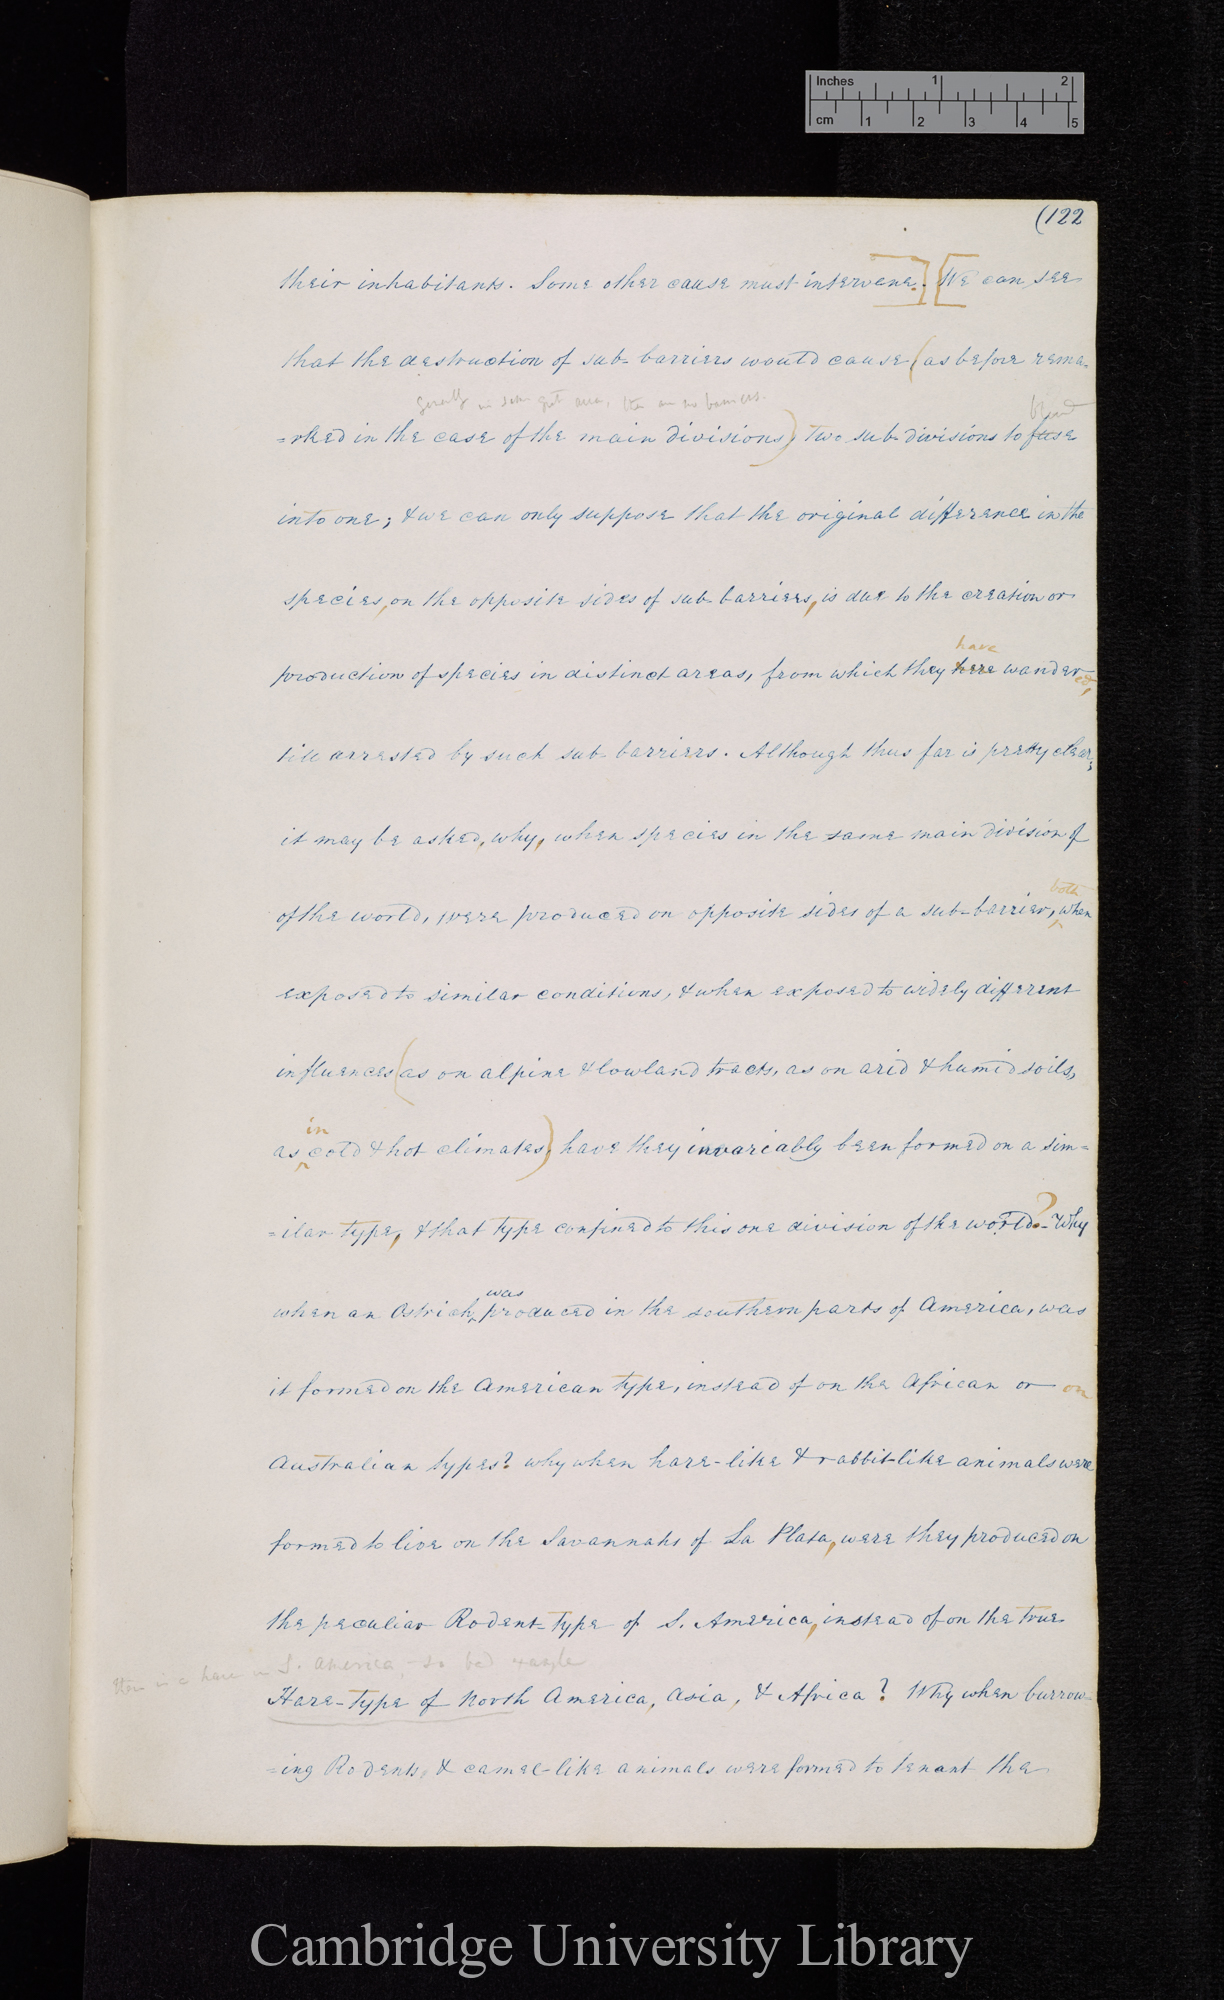 Inches 1 2
cm 1 2 3 4 5
(122
their inhabitants. Some other cause must intervene.] [We can see
that the destruction of sub-barriers would cause (as before rema-
generally in some great area, there are no barriers.
blend
=rked in the case of the main divisions) two sub-divisions to fuse
into one; & we can only suppose that the original difference in the
species, on the opposite sides of sub-barriers, is due to the creation or
have
production of species in distinct areas, from which they here wandered,
till arrested by such sub-barriers. Although thus far is pretty clear;
it may be asked, why, when species in the same main division of
both
of the world, were produced on opposite sides of a sub-barrier, ^ when
exposed to similar conditions, & when exposed to widely different
influences (as on alpine & lowland tracts, as on arid & humid soils,
in
as ^ cold & hot climates) have they invariably been formed on a sim=
=ilar type, & that type confined to this one division of the world?- Why
was
when an Ostrich ^ produced in the southern parts of America, was
it formed on the American type, instead of on the African or on
Australian types? why when hare-like & rabbit-like animals were
formed to live on the Savannahs of La Plata, were they produced on
the peculiar Rodent-type of S. America, instead of on the true
There is a hare in S. America, - so bad example
Hare-type of North America, Asia, & Africa? Why when burrow-
=ing Rodents, & camel-like animals were formed to tenant the
Cambridge University Library